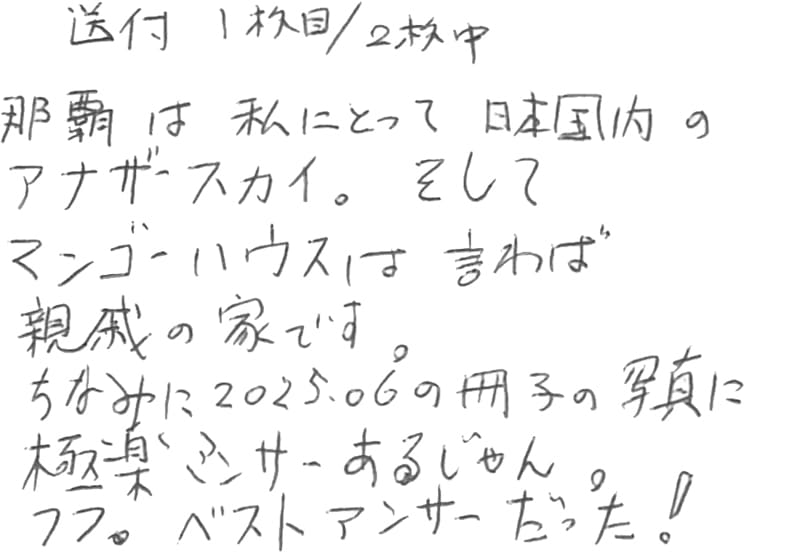 送付 1枚目/2枚中
那覇は私にとって日本国内の
アナザースカイ。そして
マンゴーハウスは言わば
親戚の家です。
ちなみに2025.06の冊子の写真に
極楽アンサーあるじゃん。
フフ。ベストアンサーだった!